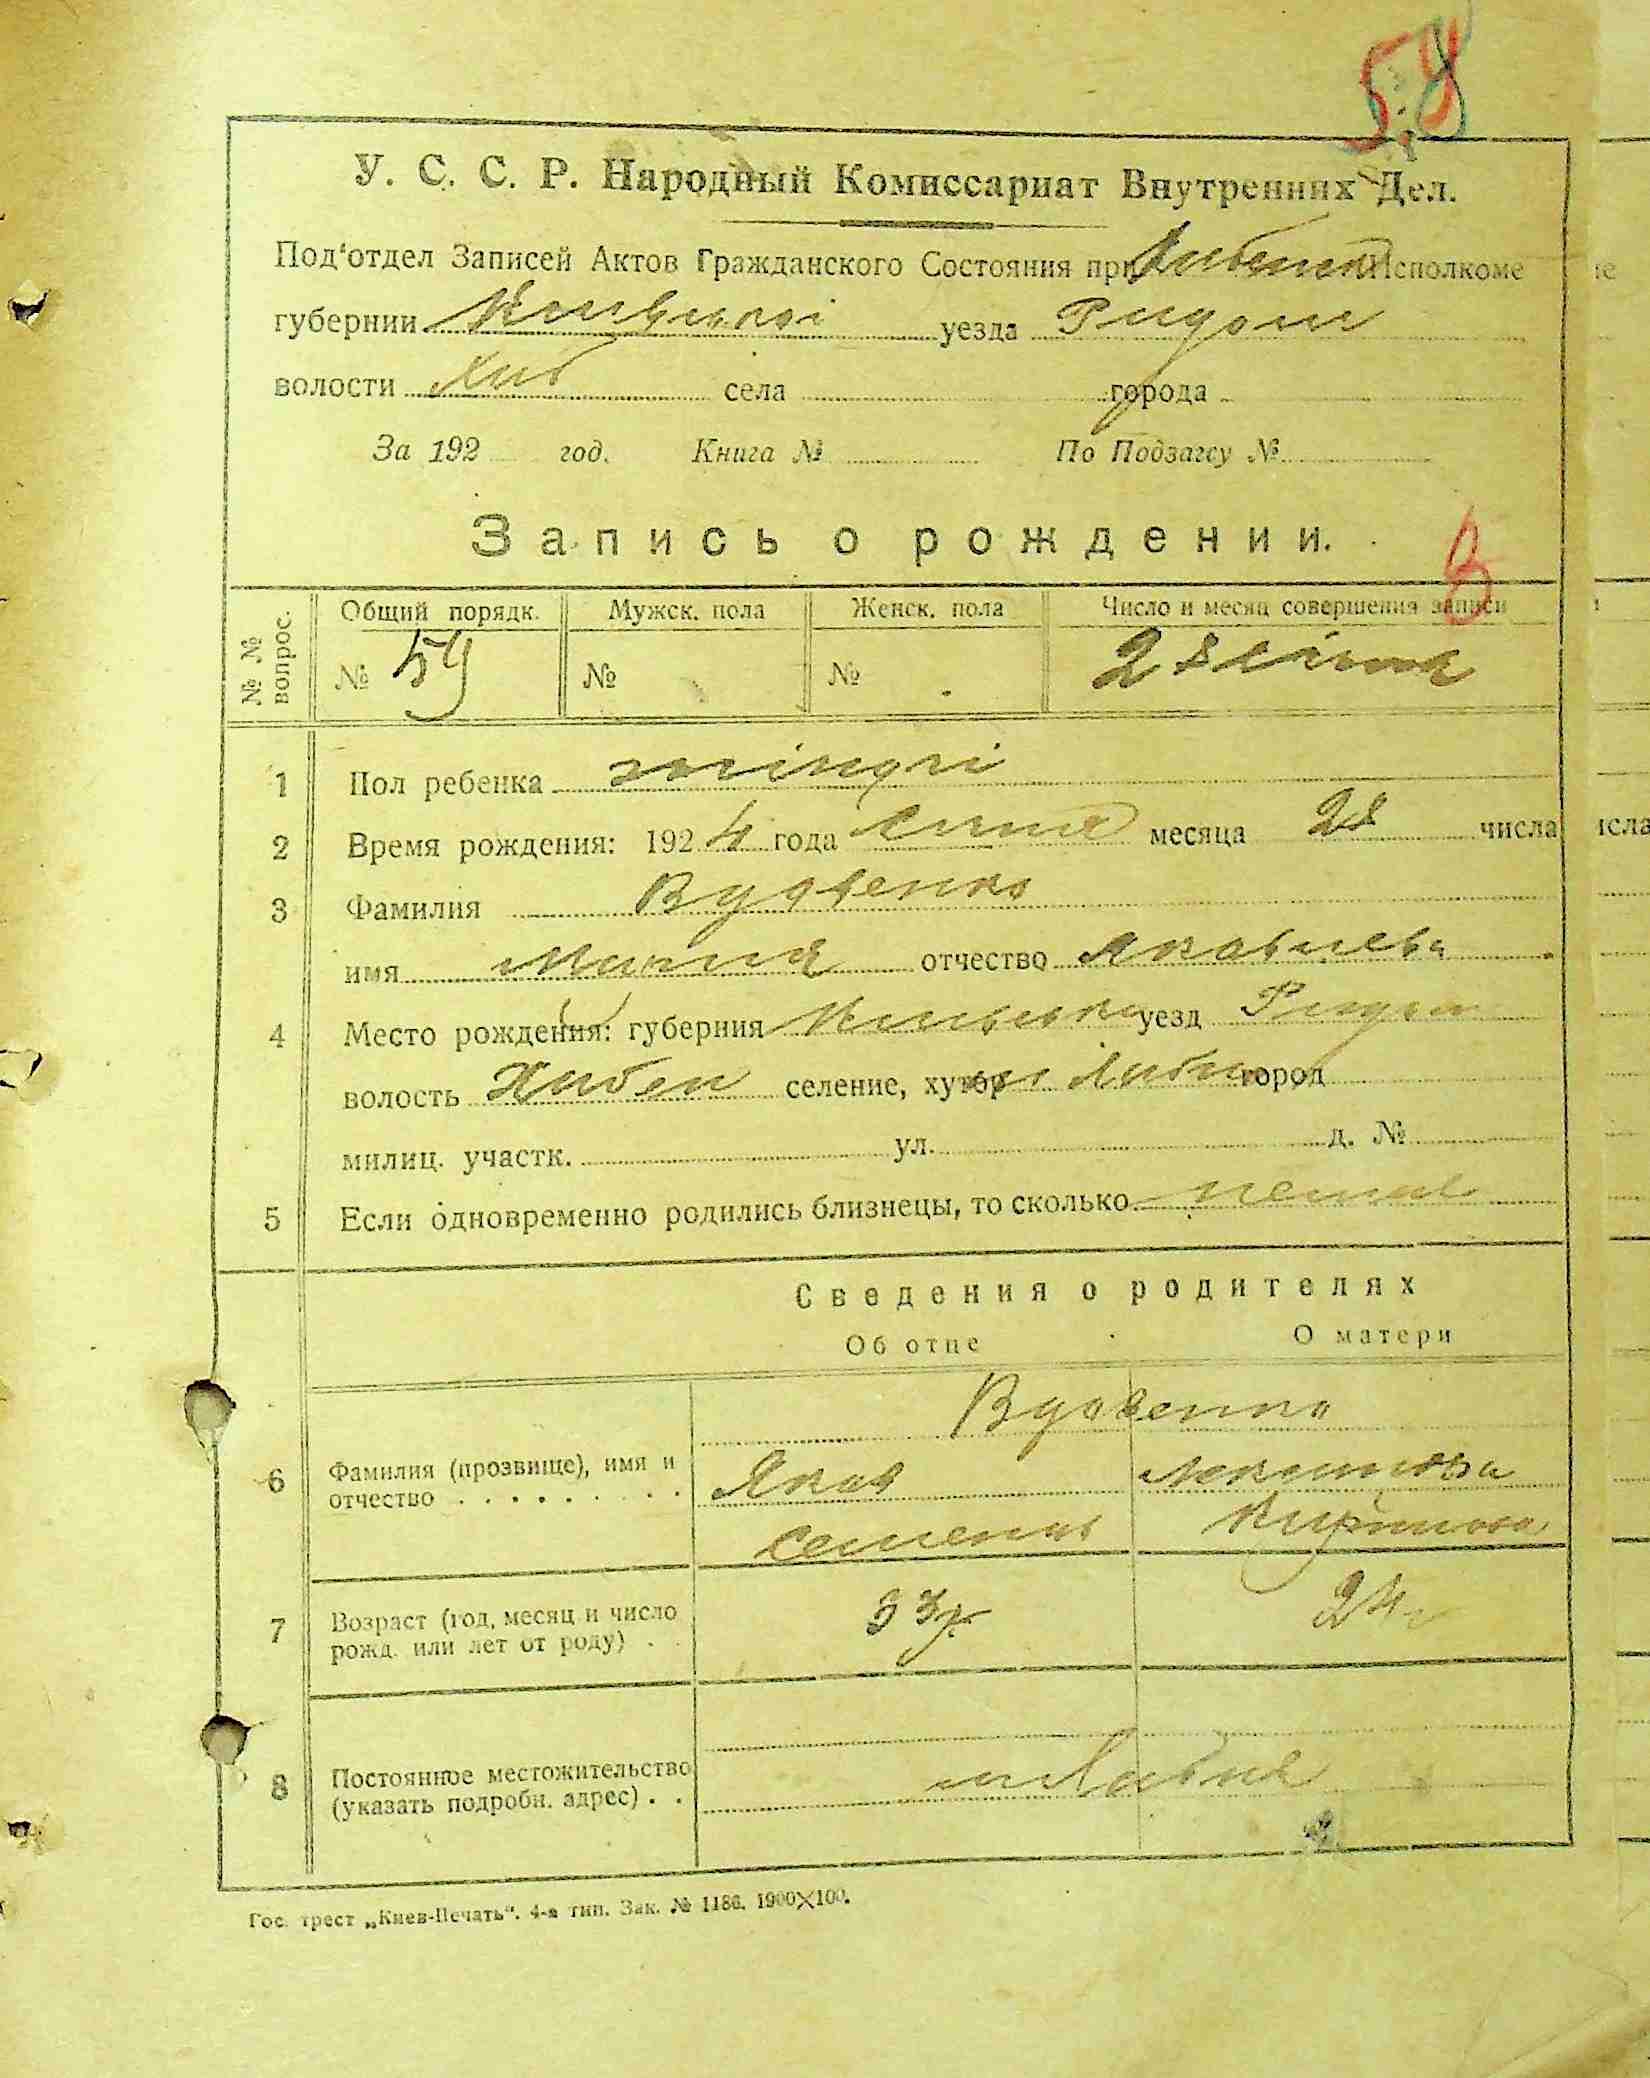 58
У. С. С. Р. Народный Комиссариат Внутренних Дел.
Под'отдел Записей Актов Гражданского Состояния при Исполкоме
губернии Київської уезда Радом
волости Хаб села города
За 192 год. Книга № По Подзагсу №
Запись о рождении.
№№ вопрос. Общий порядк. Мужск. пола Женск. пола Число и месяц совершения записи
№ 59 № № 28 січня
1 Пол ребенка жіночі
2 Время рождения: 1924 года січня месяца 28 числа
3 Фамилия Вдовенко
имя Мария отчество Яковлева
4 Место рождения: губерния Київська уезд Радом
волость Хабен селение, хутор город
милиц. участк. ул. д. №
5 Если одновременно родились близнецы, то сколько немає
Сведения о родителях
Об отце О матери
Вдовенко
6 Фамилия (прозвище), имя и Яков
отчество Семенов
7 Возраст (год, месяц и число 33 р. 24
рожд. или лет от роду)
8 Постоянное местожительство
(указать подробн. адрес)
Гос. трест „Киев-Печать". 4-я тип. Зак. № 1186. 1900×100.